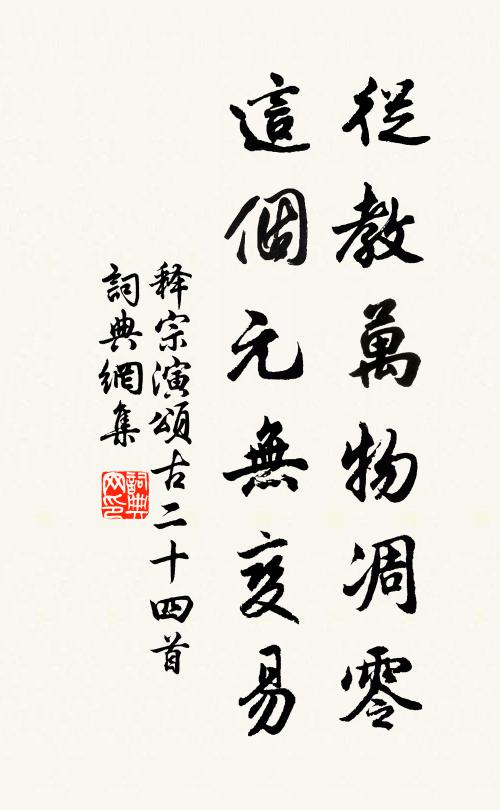 從教萬物凋零
這個元無变易
释宗演頌古二十四首
詞典網集
詞典网印